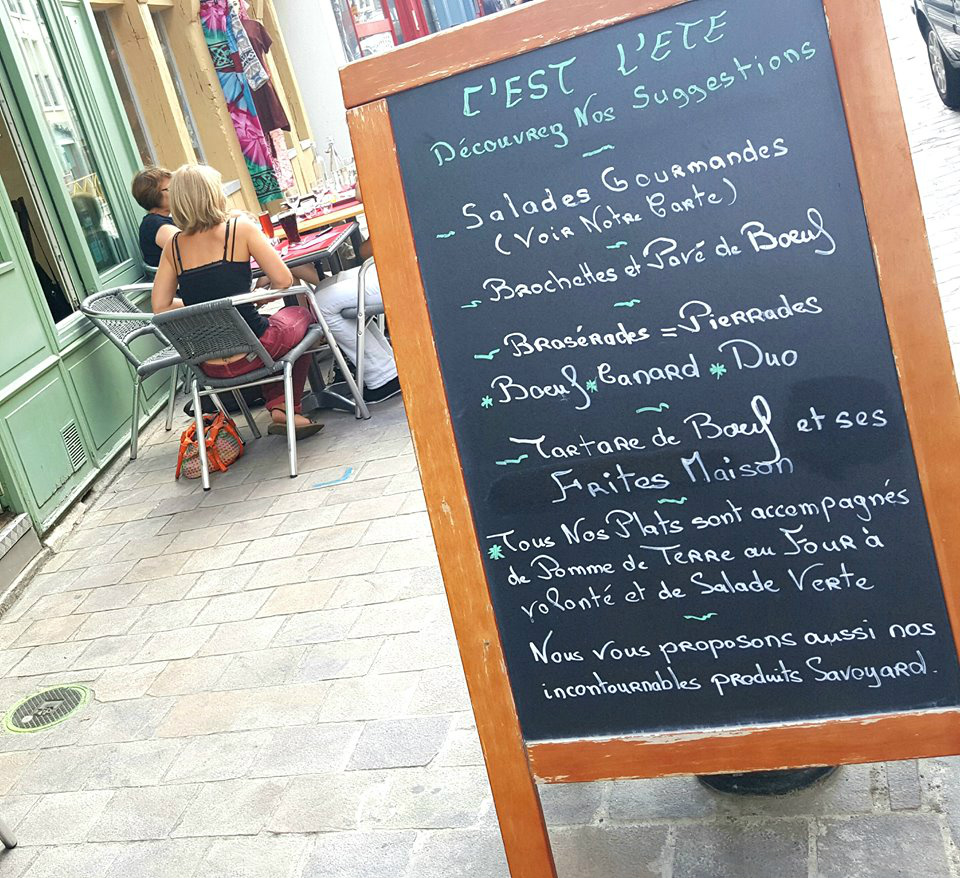 C'EST L'ETE
Découvrez Nos Suggestions
Salades Gourmandes
(Voir Notre Carte)
Brochettes et Pavé de Bœuf
Brasérades = Pierrades
* Bœuf * Canard * Duo
Tartare de Bœuf et ses
Frites Maison
* Tous Nos Plats sont accompagnés
de Pomme de Terre au Four à
volonté et de Salade Verte
Nous vous proposons aussi nos
incontournables produits Savoyard.